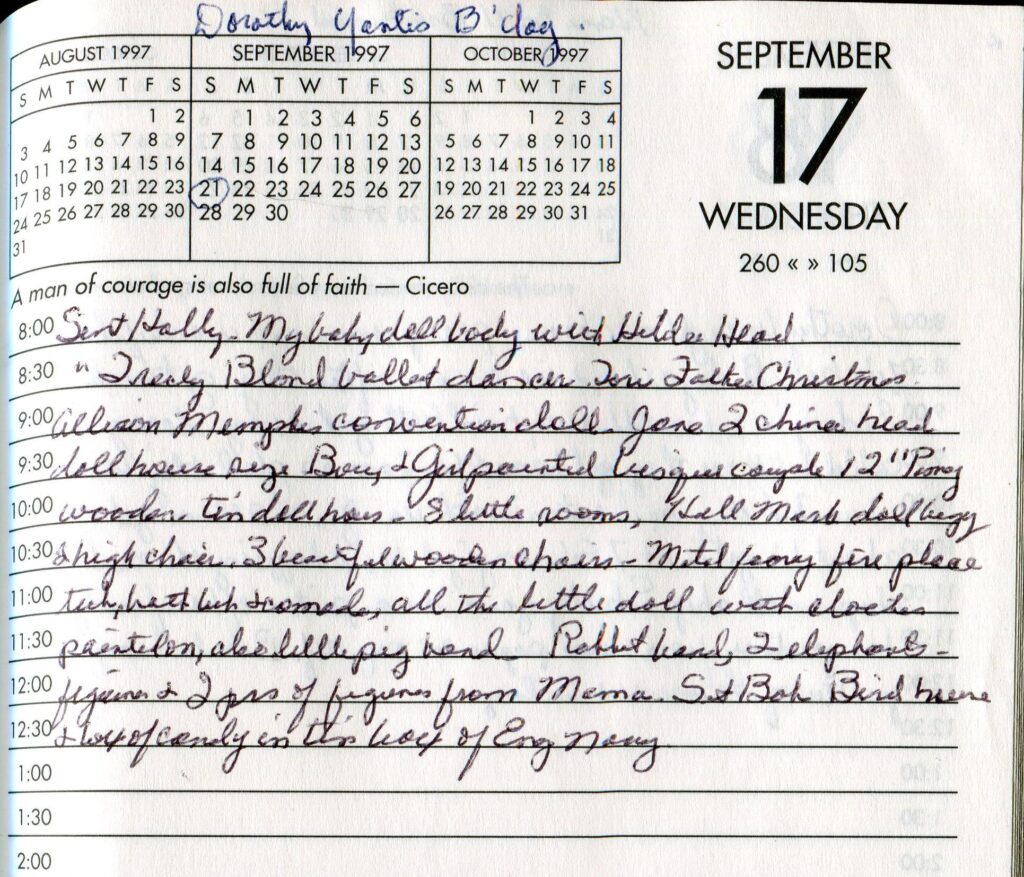 Dorothy Yantis B'day.
AUGUST 1997 SEPTEMBER 1997 OCTOBER 1997
S M T W T F S S M T W T F S S M T W T F S
1 2 1 2 3 4 5 6 1 2 3 4
3 4 5 6 7 8 9 7 8 9 10 11 12 13 5 6 7 8 9 10 11
10 11 12 13 14 15 16 14 15 16 17 18 19 20 12 13 14 15 16 17 18
17 18 19 20 21 22 23 21 22 23 24 25 26 27 19 20 21 22 23 24 25
24 25 26 27 28 29 30 28 29 30 26 27 28 29 30 31
31
SEPTEMBER
17
WEDNESDAY
260 « » 105
A man of courage is also full of faith — Cicero
8:00 Sent Hally - My baby doll body with Hilda Head
8:30 " Tracy Blond ballet dancer Teri Father Christmas.
9:00 Allison Memphis convention doll. Jane 2 china head
9:30 doll house size Boy & Girl painted bisque couple 12" Penny
10:00 wooden tin doll - 8 little rooms, Hall Mark doll
10:30 & high chair. 3 beautiful wooden chairs - fire place
11:00 tub, all the little doll with clothes
11:30 also little pig band Rabbit band, 2 elephants -
12:00 figures & 2 prs of figures from Mama. Bob Bird house
12:30 & box of candy in tin box of Eng Navy
1:00
1:30
2:00